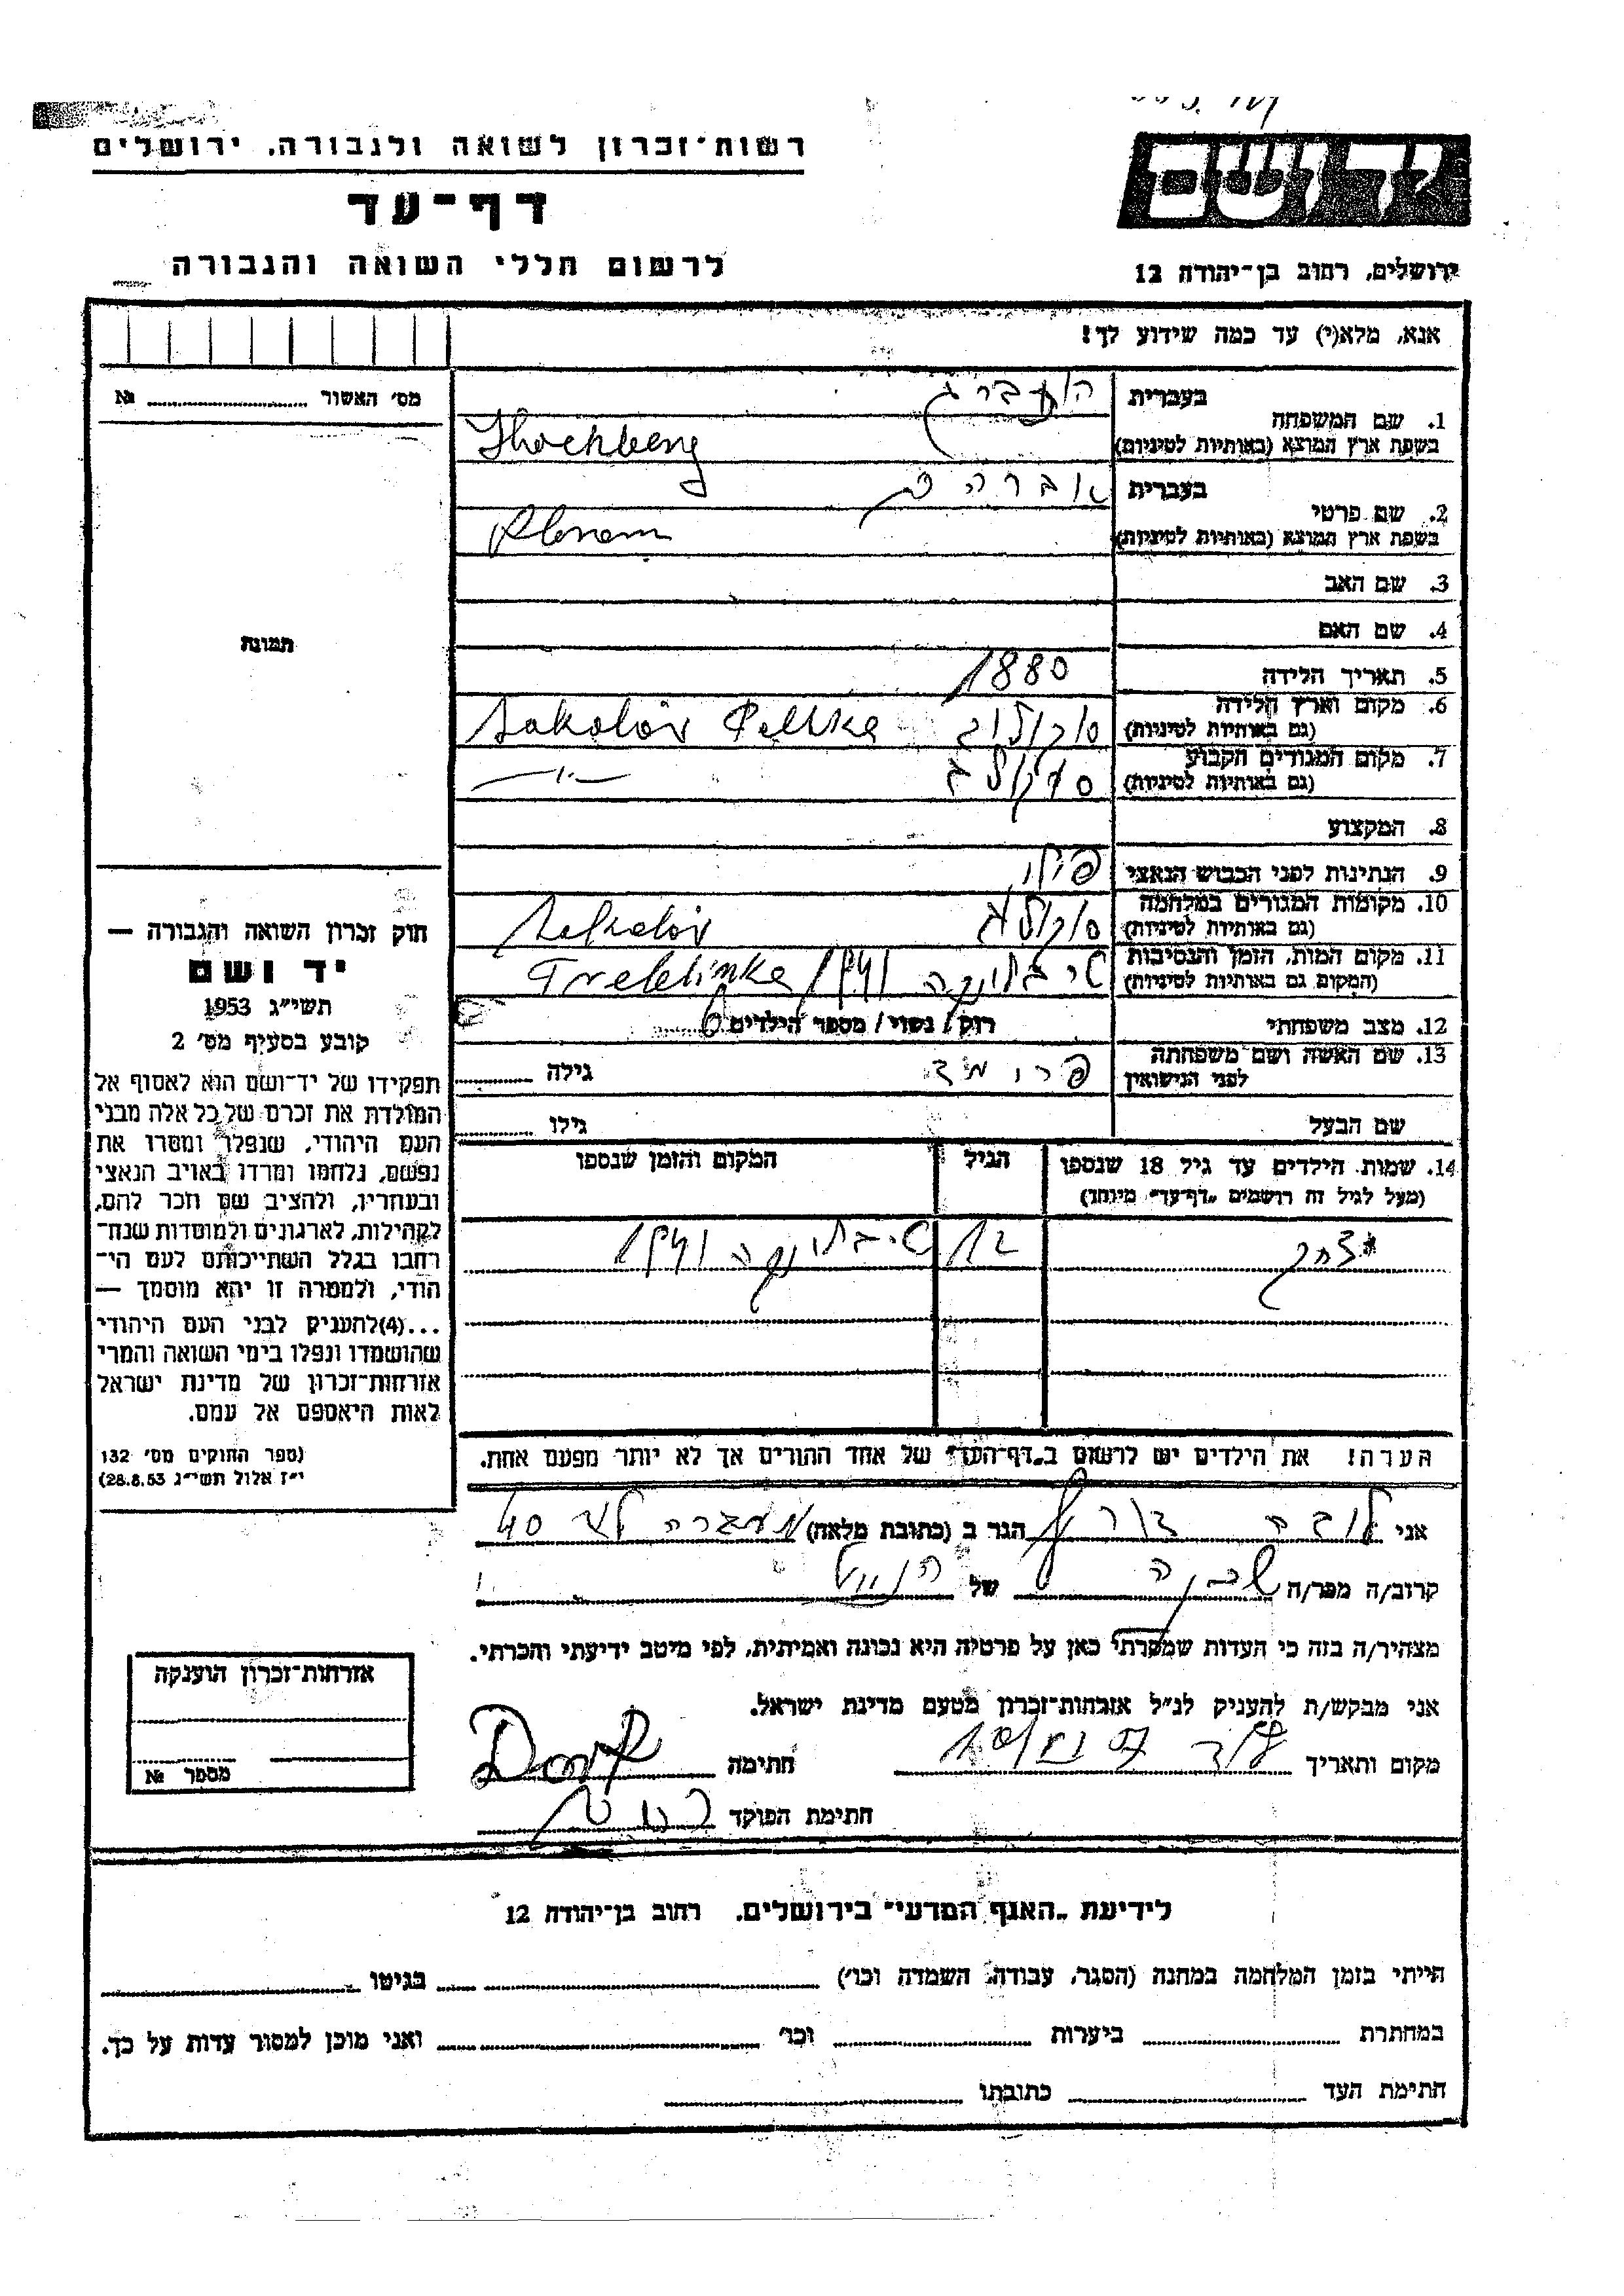 רשות־זכרון לשואה ולגבורה, ירושלים
יד ושם
דף־עד
לרשום חללי השואה והגבורה
ירושלים, רחוב בן־יהודה 12
אנא, מלא(י) עד כמה שידוע לך!
מס' האשור № 
1. שם המשפחה
בעברית
בשפת ארץ המוצא (באותיות לטיניות)
2. שם פרטי
בעברית אברהם
בשפת ארץ המוצא (באותיות לטיניות)
3. שם האב
4. שם האם
5. תאריך הלידה 1880
6. מקום וארץ הלידה
(גם באותיות לטיניות) סוקולוב Sokolów
7. מקום המגורים הקבוע
(גם באותיות לטיניות) סוקולוב —"—
8. המקצוע
9. הנתינות לפני הכבוש הנאצי פולני
10. מקומות המגורים במלחמה
(גם באותיות לטיניות) סוקולוב Sokolów
11. מקום המות, הזמן והנסיבות
(המקום גם באותיות לטיניות) טרבלינקה 1941 Treblinka
12. מצב משפחתי רווק / נשוי / מספר הילדים
13. שם האשה ושם משפחתה
לפני הנישואין גילה
שם הבעל גילו
14. שמות הילדים עד גיל 18 שנספו
(מעל לגיל זה רושמים „דף־עד" מיוחד)
הגיל
המקום והזמן שנספו
יצחק 12 טרבלינקה 1941
הערה! את הילדים יש לרשום ב„דף־העד" של אחד ההורים אך לא יותר מפעם אחת.
תמונה
חוק זכרון השואה והגבורה —
יד ושם
תשי"ג 1953
קובע בסעיף מס' 2
תפקידו של יד־ושם הוא לאסוף אל
המולדת את זכרם של כל אלה מבני
העם היהודי, שנפלו ומסרו את
נפשם, נלחמו ומרדו באויב הנאצי
ובעוזריו, ולהציב שם וזכר להם,
לקהילות, לארגונים ולמוסדות שנח־
רבו בגלל השתייכותם לעם הי־
הודי, ולמטרה זו יהא מוסמך —
...(4)להעניק לבני העם היהודי
שהושמדו ונפלו בימי השואה והמרי
אזרחות־זכרון של מדינת ישראל
לאות היאספם אל עמם.
(ספר החוקים מס' 132
י"ז אלול תשי"ג 28.8.53)
אני הגר ב (כתובת מלאה) מעברה לוד 40
קרוב/ה מכר/ה שכנה של
מצהיר/ה בזה כי העדות שמסרתי כאן על פרטיה היא נכונה ואמיתית, לפי מיטב ידיעתי והכרתי.
אני מבקש/ת להעניק לנ"ל אזרחות־זכרון מטעם מדינת ישראל.
מקום ותאריך לוד חתימה
חתימת הפוקד
אזרחות־זכרון הוענקה
מספר №
לידיעת „האגף המדעי" בירושלים, רחוב בן־יהודה 12
הייתי בזמן המלחמה במחנה (הסגר, עבודה, השמדה וכו') בגיטו
במחתרת ביערות וכו' ואני מוכן למסור עדות על כך.
חתימת העד כתובתו